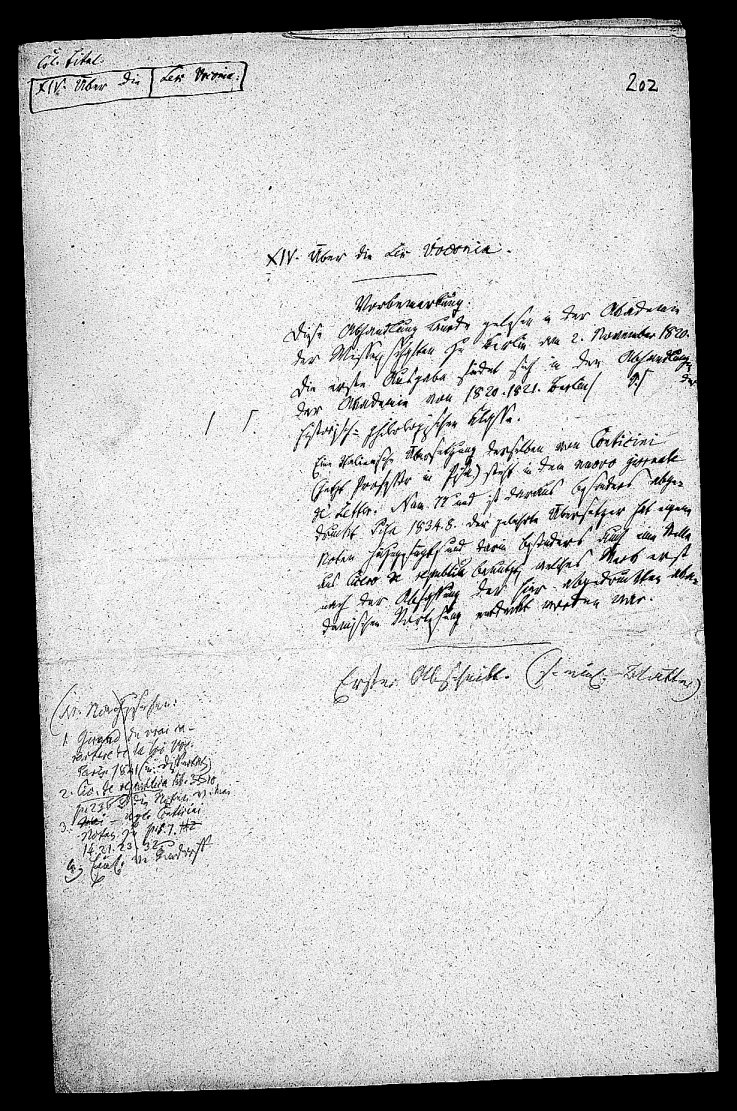 Col. Titel.
XIV. Über die Lex Voconia.
202
XIV. Über die Lex Voconia.
Vorbemerkung.
Diese Abhandlung wurde gelesen in der Akademie
der Wissenschaften zu Berlin am 2. November 1820.
Die erste Ausgabe findet sich in den Abhandlungen
der Akademie von 1820. 1821. Berlin der
historisch-philologischen Klasse.
Eine Italienische Übersetzung derselben von Conticini
(jetzt Professor in Pisa) steht in dem nuovo giornale
de' Letter. Num. und ist daraus besonders abge-
druckt Pisa 1834. 8. Der gelehrte Übersetzer hat eigene
Noten hinzugefügt und darin besonders auch eine Stelle
aus Cicero de republica benutzt, welches Werk erst
nach der Abfassung der hier abgedruckten aka-
demischen Vorlesung entdeckt worden war.
Erster Abschnitt. (s. einz. Blätter)
Nachzusehen:
1. Giraud du vrai ca-
ractère de la loi Voc.
Paris 1841
2. Cic. de republica lib. 3
die Noten
3. Conticini
Noten zu p. 7.
14. 21. 23. 32.